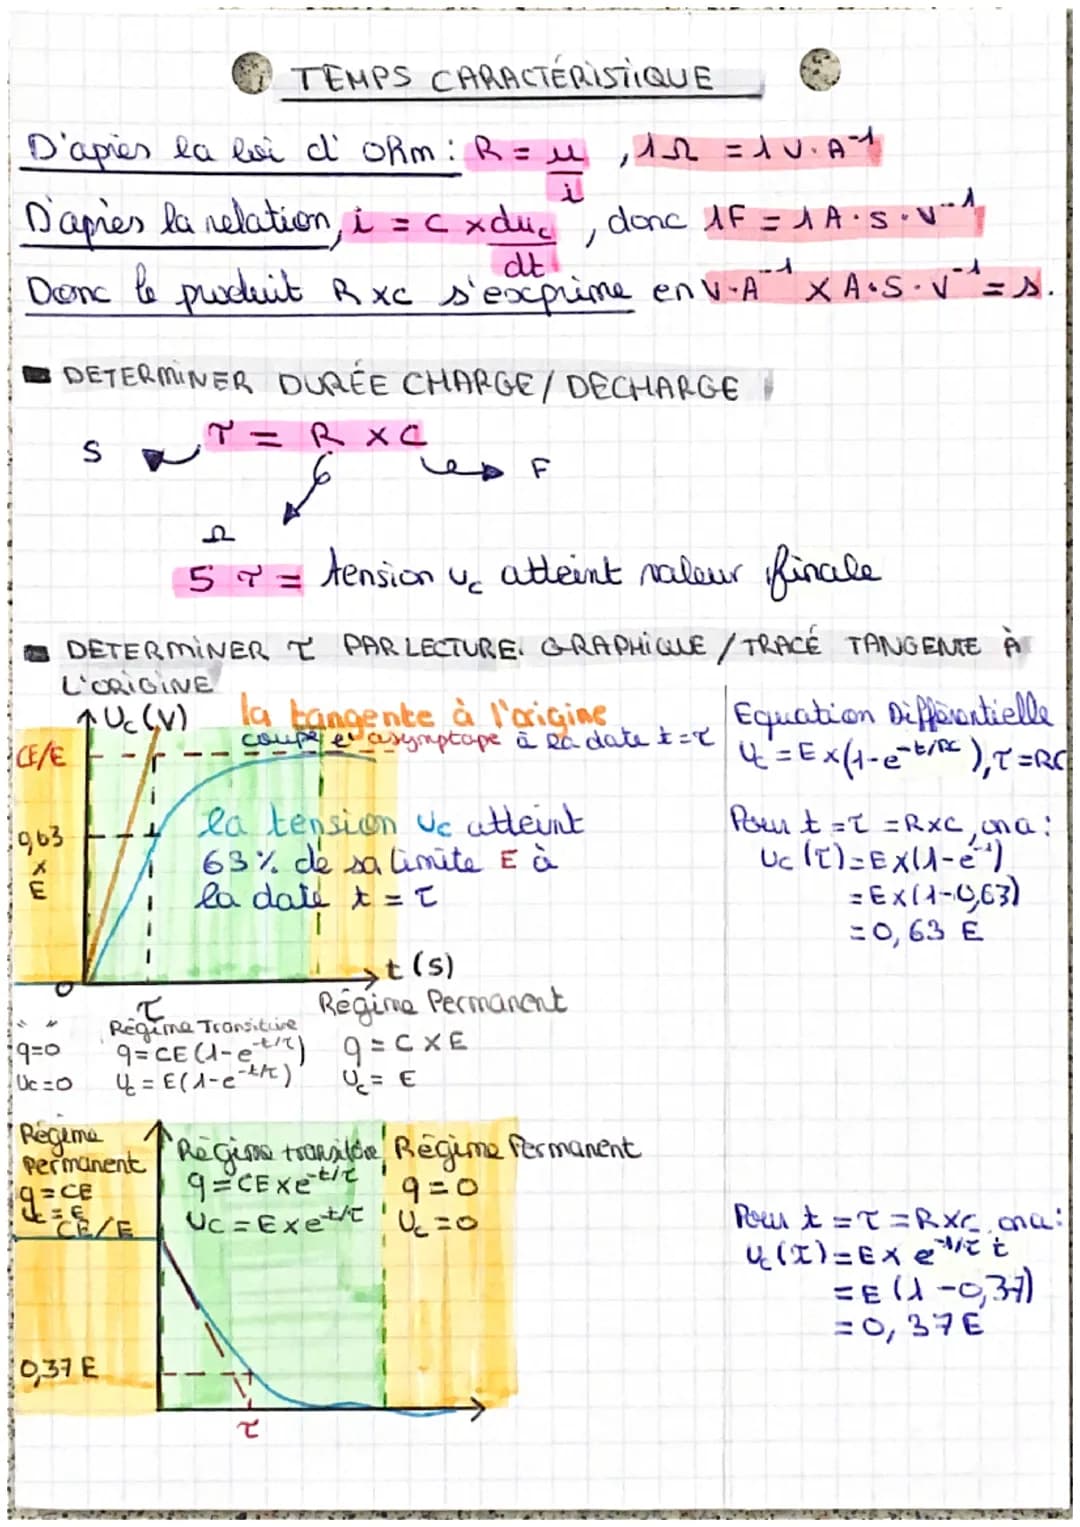 TEMPS CARACTÉRISTIQUE
D'après la loi d'ohm : R = u/i , 1Ω = 1 V.A⁻¹
D'après la relation, i = C x duc/dt , donc 1F = 1 A.s.V⁻¹
Donc le produit R x C s'exprime en V.A⁻¹ x A.S.V⁻¹ = s.
DETERMINER DURÉE CHARGE / DECHARGE
τ = R x C
S
F
Ω
5 τ = tension uc atteint valeur finale
DETERMINER τ PAR LECTURE GRAPHIQUE / TRACÉ TANGENTE À
L'ORIGINE
Uc (V)
la tangente à l'origine
coupe l'asymptope à la date t = τ
CE/E
0,63
x
E
la tension Uc atteint
63% de sa limite E à
la date t = τ
t (s)
0
τ
Régime Permanent
Régime Transitoire
q=0
q = CE (1-e^-t/τ)
q = C x E
Uc = 0
Uc = E(1-e^-t/τ)
Uc = E
Equation Différentielle
Uc = E x (1-e^-t/RC), τ = RC
Pour t = τ = R x C, on a :
Uc (τ) = E x (1-e⁻¹)
= E x (1-0,63)
= 0,63 E
Régime
Permanent
q = CE
Uc = E
CE/E
Régime transitoire
q = CE x e^-t/τ
Uc = E x e^-t/τ
Régime Permanent
q = 0
Uc = 0
0,37 E
τ
Pour t = τ = R x C, on a :
Uc (τ) = E x e^-1/τ t
= E (1 - 0,37)
= 0,37 E